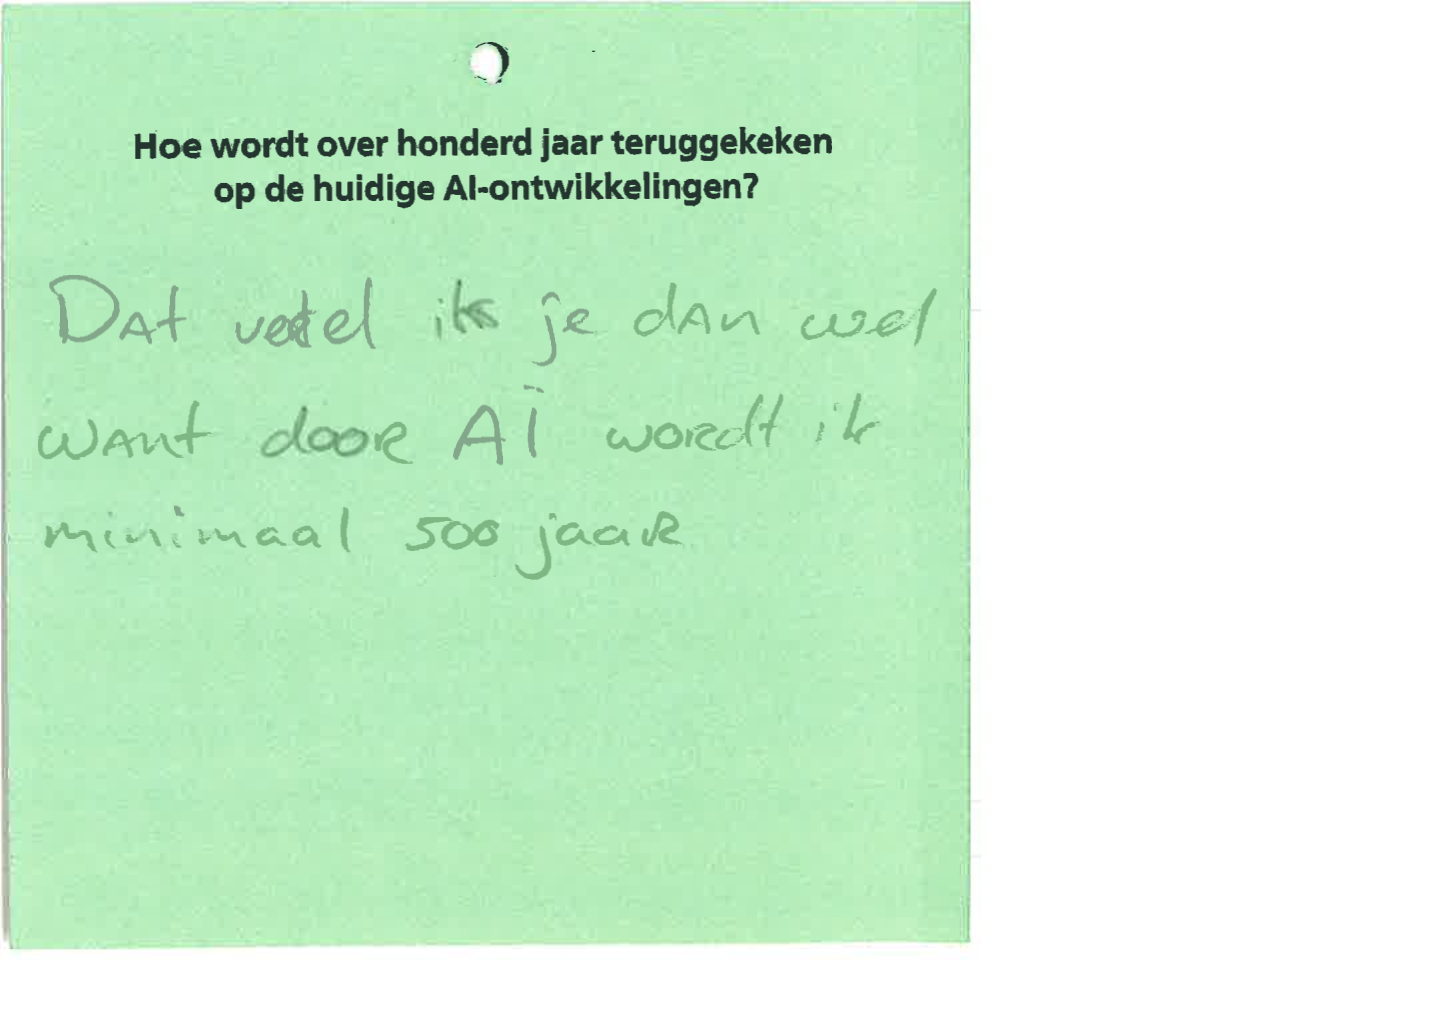 Hoe wordt over honderd jaar teruggekeken
op de huidige AI-ontwikkelingen?
DAt vertel ik je dAn wel
WANt dooR AI woRdt ik
minimaal 500 jaaR